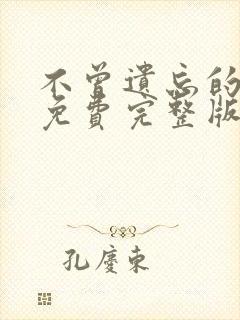 不曾遗忘的
免費完整版
孔慶東